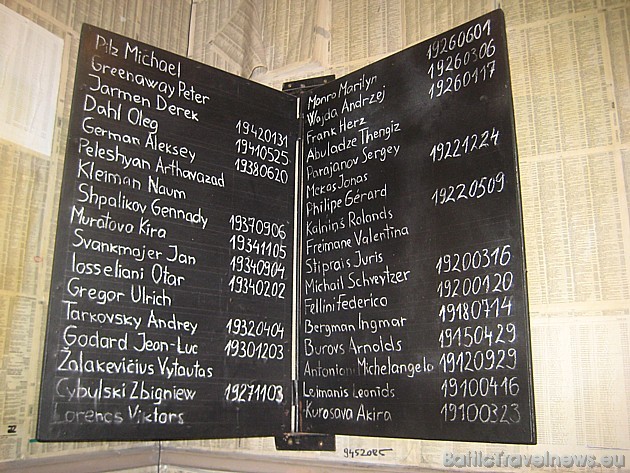 Pilz Michael
Greenaway Peter
Jarmen Derek 19420131
Dahl Oleg 19410525
German Aleksey 19380620
Peleshyan Arthavazad
Kleiman Naum
Shpalikov Gennady 19370906
Muratova Kira 19341105
Svankmajer Jan 19340904
Iosseliani Otar 19340202
Gregor Ulrich
Tarkovsky Andrey 19320404
Godard Jean-Luc 19301203
Žalakevičius Vytautas
Cybulski Zbigniew 19271103
Lorencs Viktors
Monro Marilyn 19260601
Wajda Andrzej 19260306
Frank Herz 19260117
Abuladze Thengiz
Parajanov Sergey
Mekas Jonas 19221224
Philipe Gérard
Kalniņš Rolands 19220509
Freimane Valentina
Stiprais Juris
Michail Schveytzer 19200316
Fellini Federico 19200120
Bergman Ingmar 19180714
Burovs Arnolds 19150429
Antonioni Michelangelo 19120929
Leimanis Leonids 19100416
Kurosava Akira 19100323
9452085
BalticTravelnews.eu